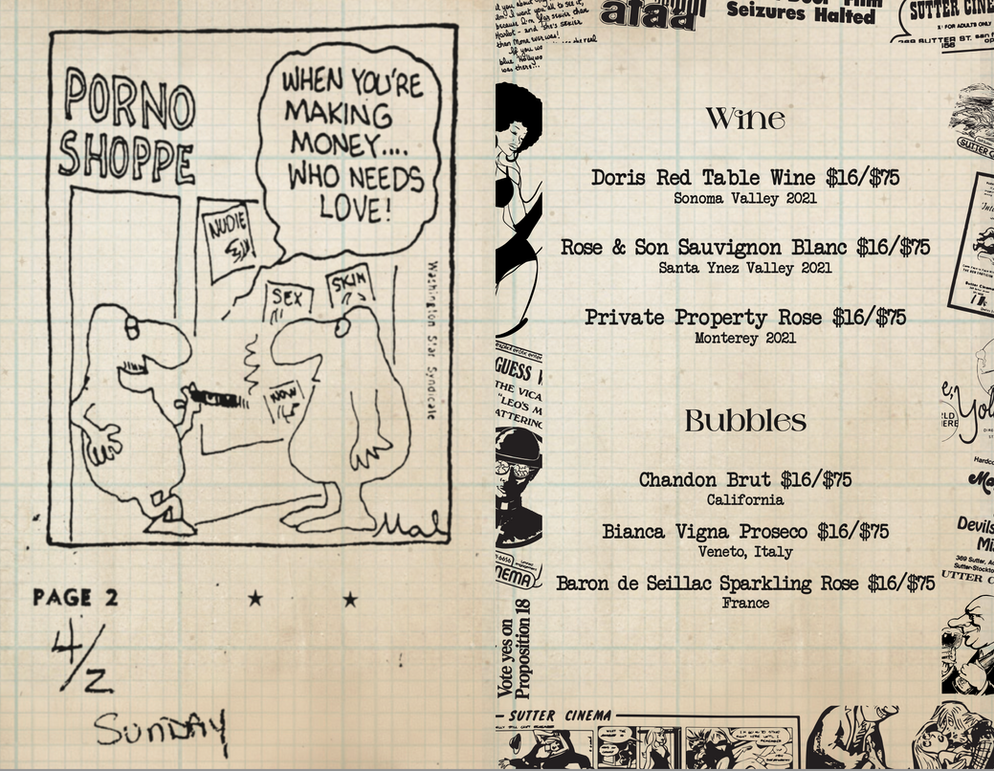 PORNO
SHOPPE
WHEN YOU'RE
MAKING
MONEY....
WHO NEEDS
LOVE!
NUDIE
SEX
SKIN
NOW
Washington Star Syndicate
Mal
PAGE 2
4/2
SUNDAY
Seizures Halted
SUTTER CINE
FOR ADULTS ONLY
Wine
Doris Red Table Wine $16/$75
Sonoma Valley 2021
Rose & Son Sauvignon Blanc $16/$75
Santa Ynez Valley 2021
Private Property Rose $16/$75
Monterey 2021
Bubbles
Chandon Brut $16/$75
California
Bianca Vigna Proseco $16/$75
Veneto, Italy
Baron de Seillac Sparkling Rose $16/$75
France
GUESS
THE VICA
"LEO'S M
ATTERING
NEMA
Vote yes on
Proposition 18
SUTTER CINEMA
Devils
Mi
369 Sutter,
Sutter-Stockto
UTTER C